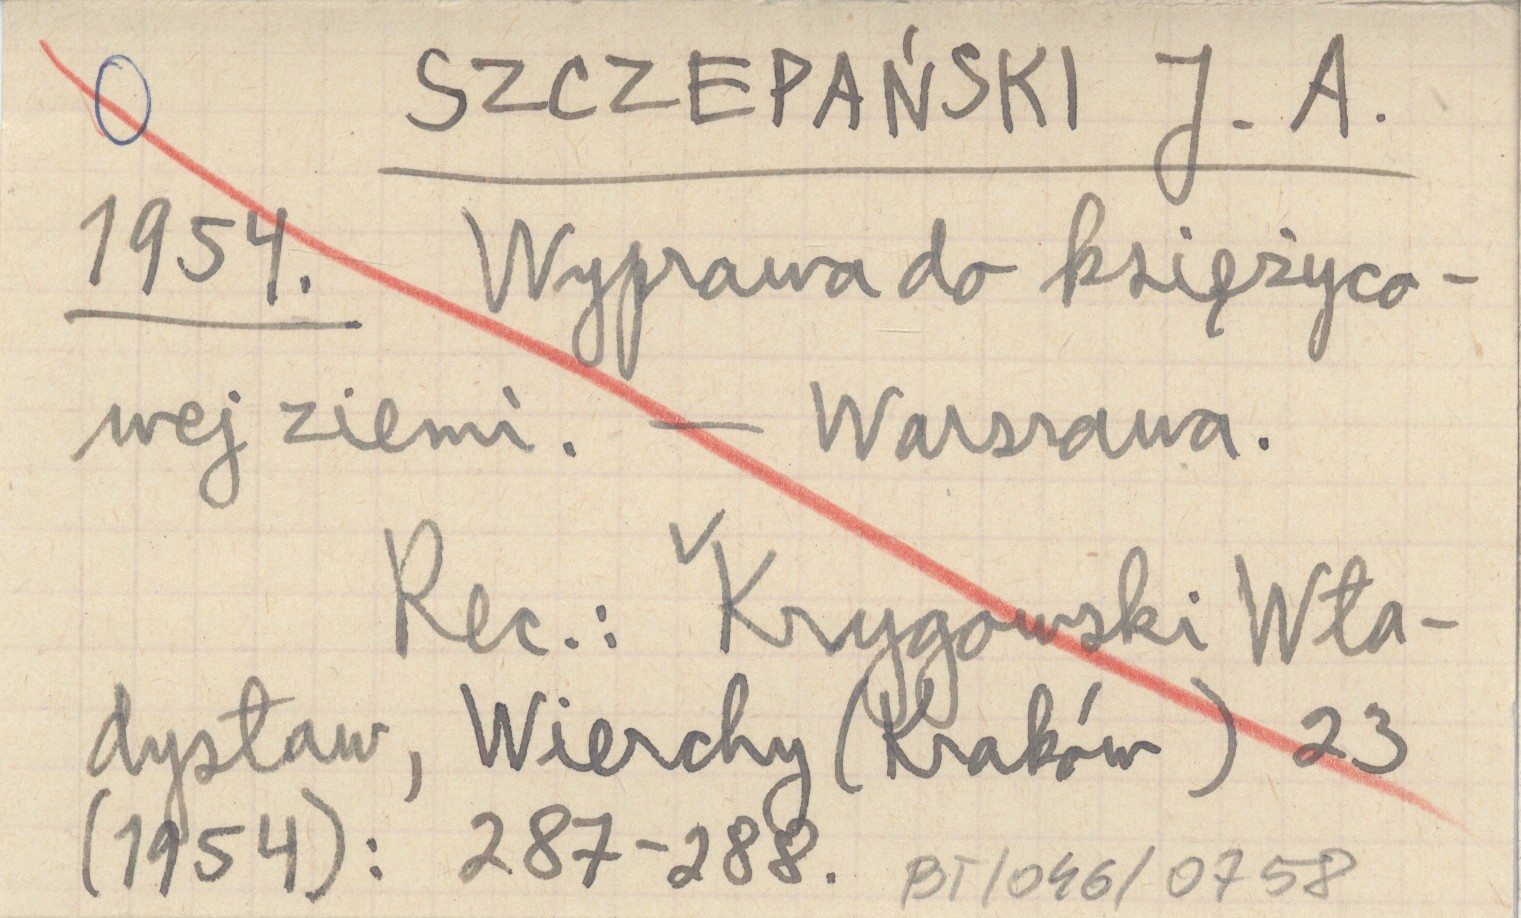 SZCZEPAŃSKI J. A.
1954. Wyprawa do księżyco-
wej ziemi. — Warszawa.
Rec.: Krygowski Wła-
dysław, Wierchy (Kraków) 23
(1954): 287-288.
BT/046/0758